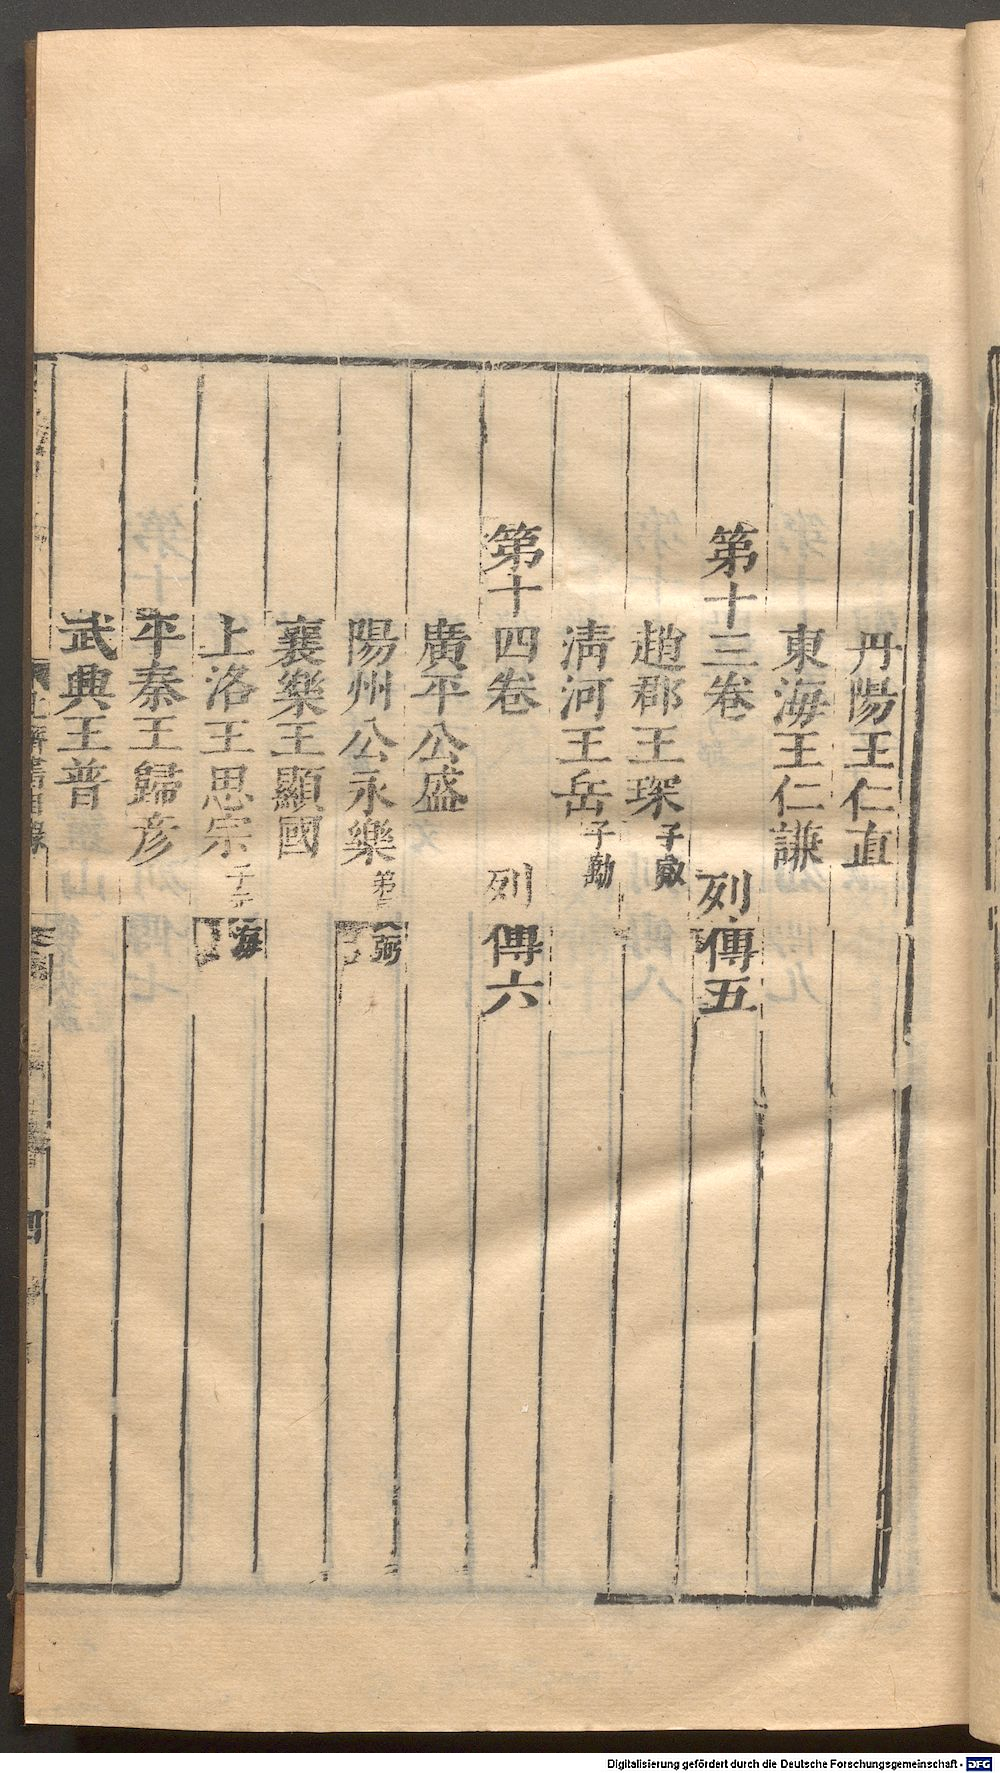 丹陽王仁直
東海王仁謙
第十三卷 列傳五
趙郡王琛 子叡
清河王岳 子勱
第十四卷 列傳六
廣平公盛
陽州公永樂 弟長弼
襄樂王顯國
上洛王思宗 子元海
平秦王歸彥
武興王普
北齊書目錄
四
Digitalisierung gefördert durch die Deutsche Forschungsgemeinschaft - DFG